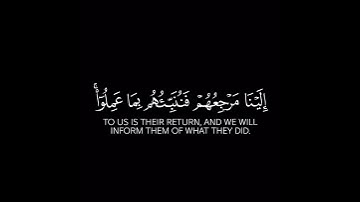 إِلَيْنَا مَرْجِعُهُمْ فَنُنَبِّئُهُم بِمَا عَمِلُوٓا۟ ۚ
TO US IS THEIR RETURN, AND WE WILL
INFORM THEM OF WHAT THEY DID.